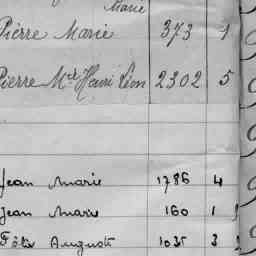 Marie
Pierre Marie 373 1
Pierre Mel Henri Léon 2302 5
Jean Marie 1786 4
Jean Marie 160 1
Félix Auguste 1035 3